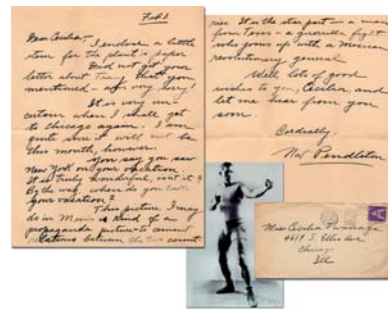 Feb 1.
Dear Cecilia,
I enclose a little
item for the plant's paper.
Did not get your
letter about Tracy that you
mentioned - am very sorry!
It is very un-
certain when I shall get
to Chicago again. I am
quite sure it will not be
this month, however.
You say you saw
New York on your vacation.
It is truly wonderful, isn't it?
By the way, where do you
your vacation?
This picture I may
do in Mexico is kind of a
propaganda picture to cement
relations between the two
ries. It is the star part - a man
from Texas - a guerrilla fight
who joins up with a Mexican
revolutionary general
Well, lots of good
wishes to you, Cecilia, and
let me hear from you
soon.
Cordially,
Nat Pendleton
Miss Cecilia
4619 S. Ellis Ave
Chicago
Ill